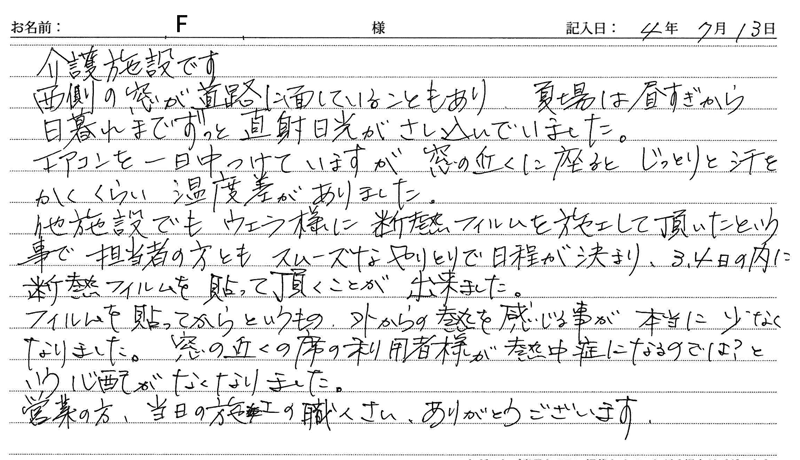 お名前： F 様 記入日： 4年 7月13日
介護施設です
西側の窓が道路に面していることもあり、夏場は昼すぎから
日暮れまでずっと直射日光がさし込んでいました。
エアコンを一日中つけていますが 窓の近くに座ると じっとりと汗を
かくくらい 温度差がありました。
他施設でも ウェラ様に 断熱フィルムを施工して頂いたという
事で 担当者の方とも スムーズなやりとりで日程が決まり、3,4日の内に
断熱フィルムを 貼って頂くことが 出来ました。
フィルムを貼ってからというもの、外からの熱を感じる事が 本当に 少なく
なりました。 窓の近くの席の利用者様が 熱中症になるのでは？と
いう心配が なくなりました。
営業の方、当日の施工の職人さい、ありがとうございます.